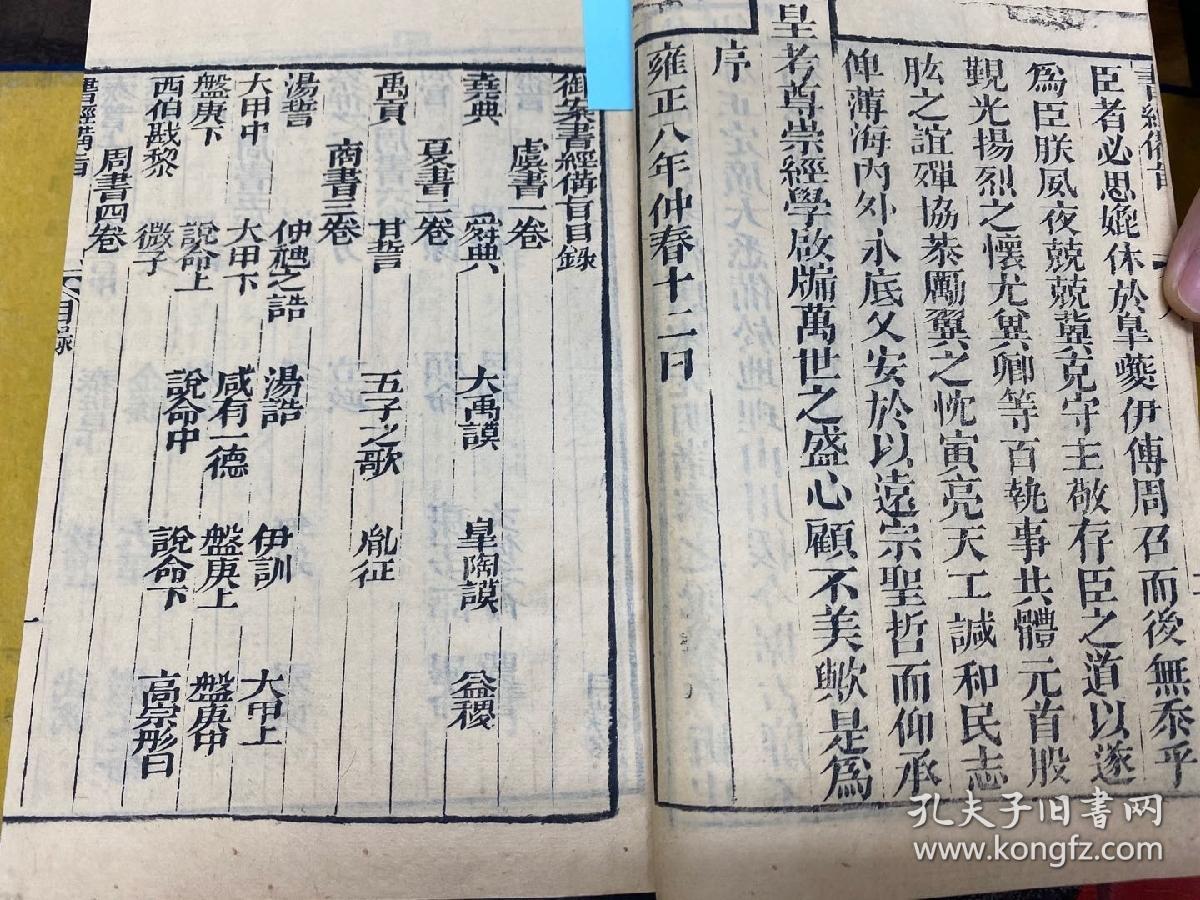 書經備旨
臣者必思媲休於皐夔伊傅周召而後無忝乎
為臣朕夙夜兢兢冀克守主敬存臣之道以遂
覲光揚烈之懷尤兾卿等百執事共體元首股
肱之誼殫協恭勵翼之忱寅亮天工諴和民志
俾薄海內外永底乂安於以遠宗聖哲而仰承
皇考尊崇經學啟牖萬世之盛心顧不美歟是為
序
雍正八年仲春十二日
御案書經備旨目錄
虞書一卷
堯典 舜典 大禹謨 皐陶謨 益稷
夏書二卷
禹貢 甘誓 五子之歌 胤征
商書三卷
湯誓 仲虺之誥 湯誥 伊訓 大甲上
大甲中 大甲下 咸有一德 盤庚上 盤庚中
盤庚下 說命上 說命中 說命下 高宗肜日
西伯戡黎 微子
周書四卷
書經備旨 目錄 一
孔夫子旧书网
www.kongfz.com